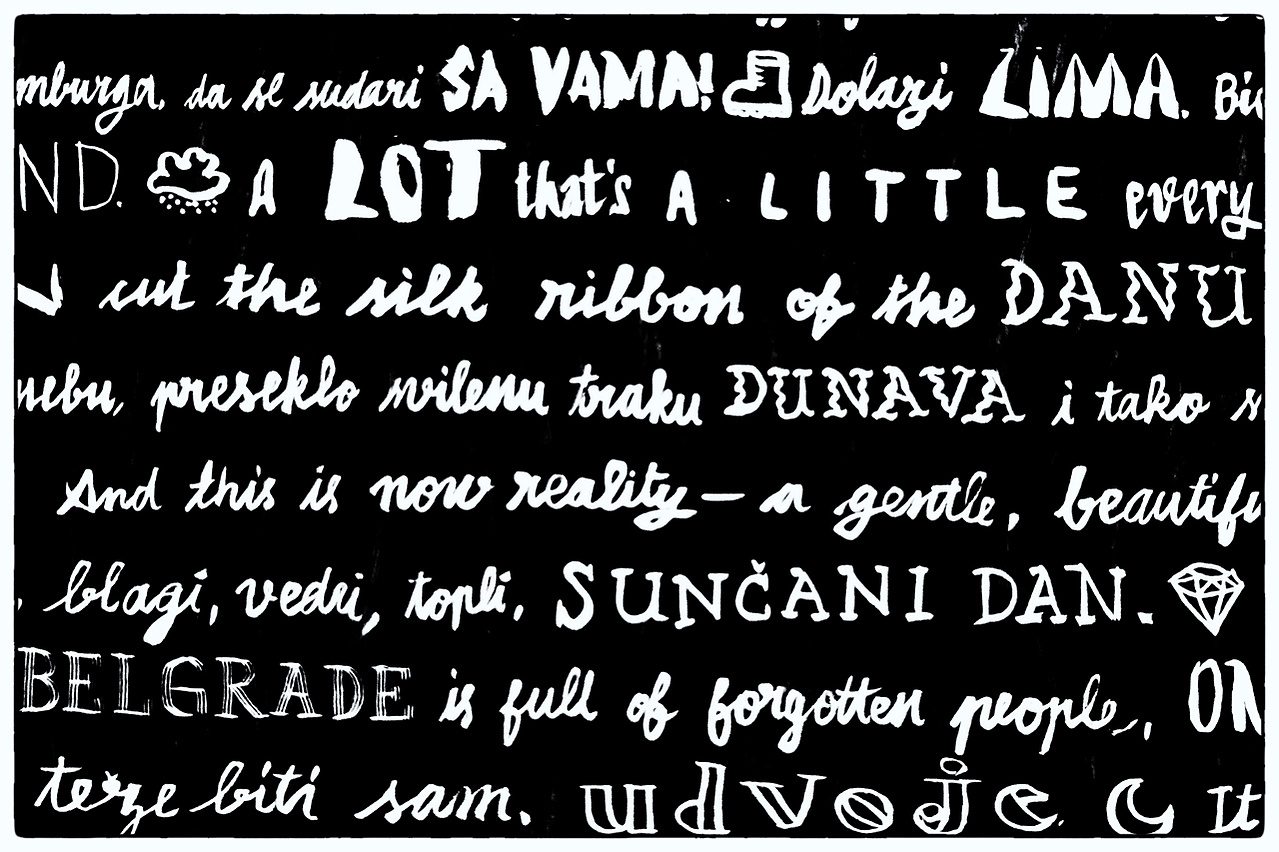 mburga, da se sudari SA VAMA! Dolazi ZIMA. Bi
ND. A LOT that's A LITTLE every
cut the silk ribbon of the DANU
nebu, preseklo svilenu traku DUNAVA i tako s
And this is now reality — a gentle, beautifu
. blagi, vedri, topli, SUNČANI DAN.
BELGRADE is full of forgotten people, ON
teže biti sam. udvoje. It